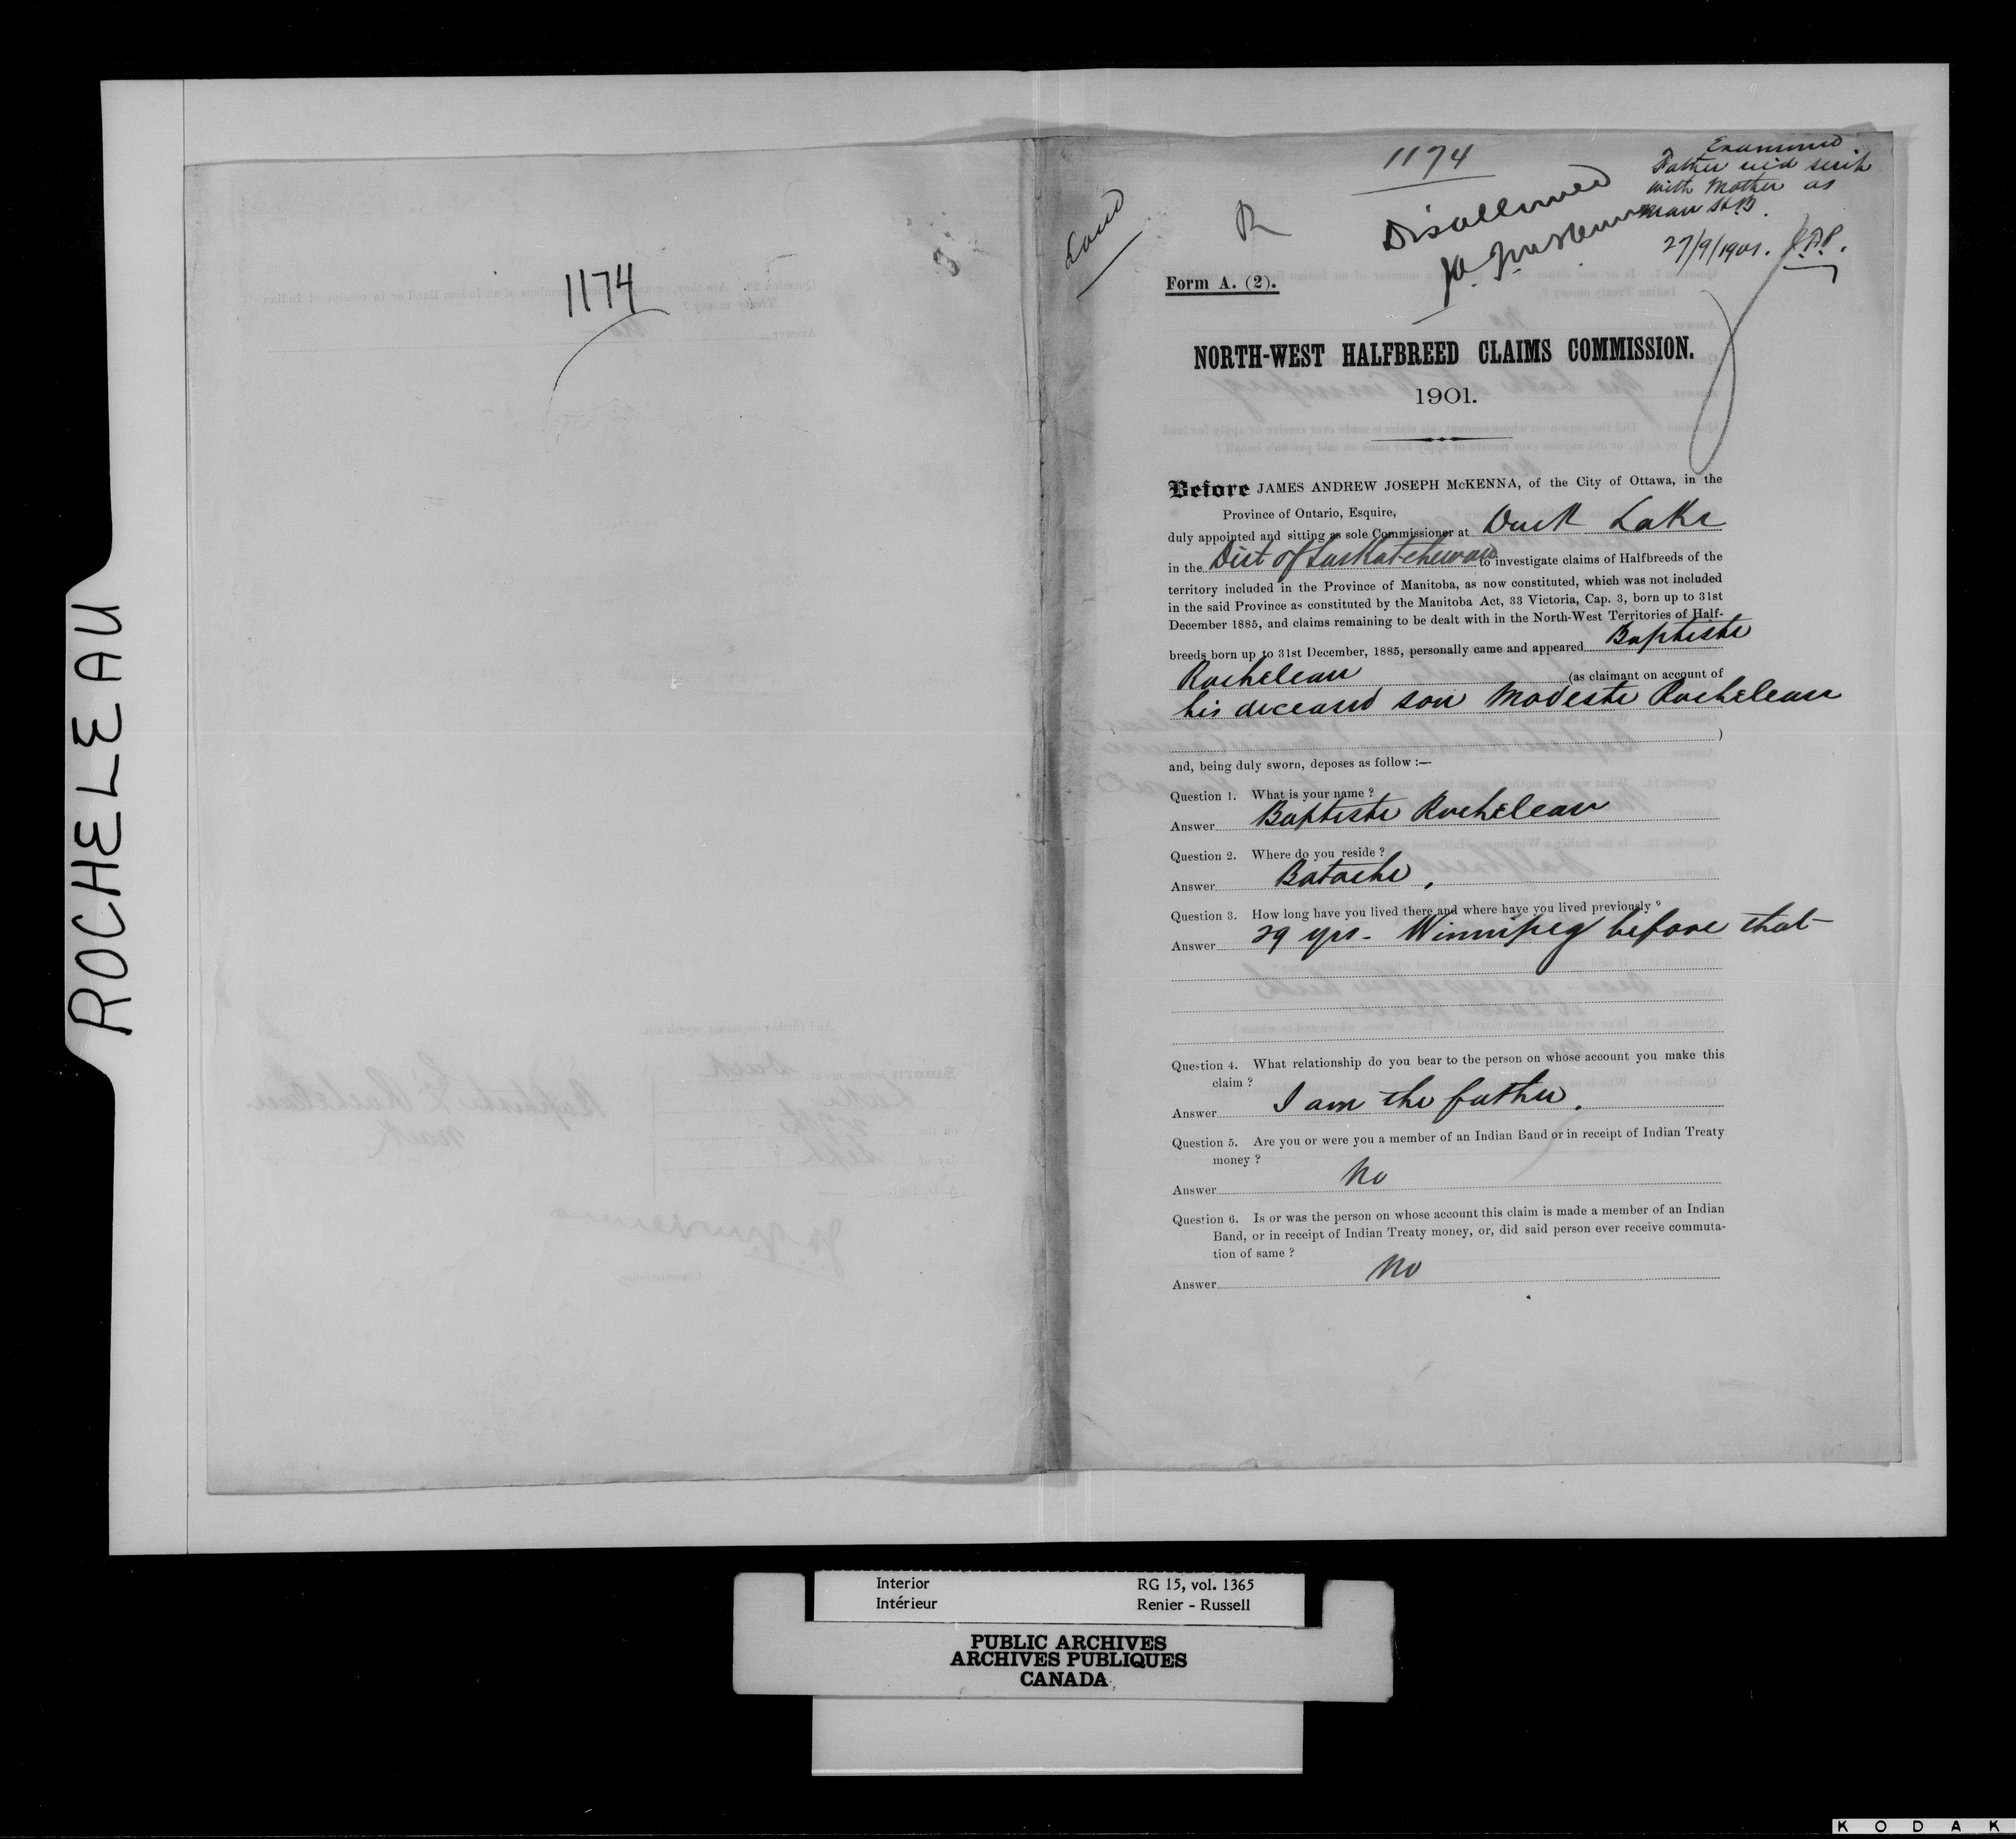 ROCHELEAU
1174
1174
Land
R
Disallowed
J.A.J. McKenna
Examined
Father rec'd scrip
with Mother as
Man H.B.
27/9/1901. J.P.
Form A. (2).
NORTH-WEST HALFBREED CLAIMS COMMISSION.
1901.
Before JAMES ANDREW JOSEPH McKENNA, of the City of Ottawa, in the
Province of Ontario, Esquire,
duly appointed and sitting as sole Commissioner at Duck Lake
in the Dist of Saskatchewan to investigate claims of Halfbreeds of the
territory included in the Province of Manitoba, as now constituted, which was not included
in the said Province as constituted by the Manitoba Act, 33 Victoria, Cap. 3, born up to 31st
December 1885, and claims remaining to be dealt with in the North-West Territories of Half-
breeds born up to 31st December, 1885, personally came and appeared Baptiste
Rocheleau (as claimant on account of
his deceased son Modeste Rocheleau
)
and, being duly sworn, deposes as follow :—
Question 1. What is your name ?
Answer Baptiste Rocheleau
Question 2. Where do you reside ?
Answer Batoche,
Question 3. How long have you lived there and where have you lived previously ?
Answer 29 yrs - Winnipeg before that
Question 4. What relationship do you bear to the person on whose account you make this
claim ?
Answer I am the father.
Question 5. Are you or were you a member of an Indian Band or in receipt of Indian Treaty
money ?
Answer No
Question 6. Is or was the person on whose account this claim is made a member of an Indian
Band, or in receipt of Indian Treaty money, or, did said person ever receive commuta-
tion of same ?
Answer No
Interior RG 15, vol. 1365
Intérieur Renier - Russell
PUBLIC ARCHIVES
ARCHIVES PUBLIQUES
CANADA
KODAK